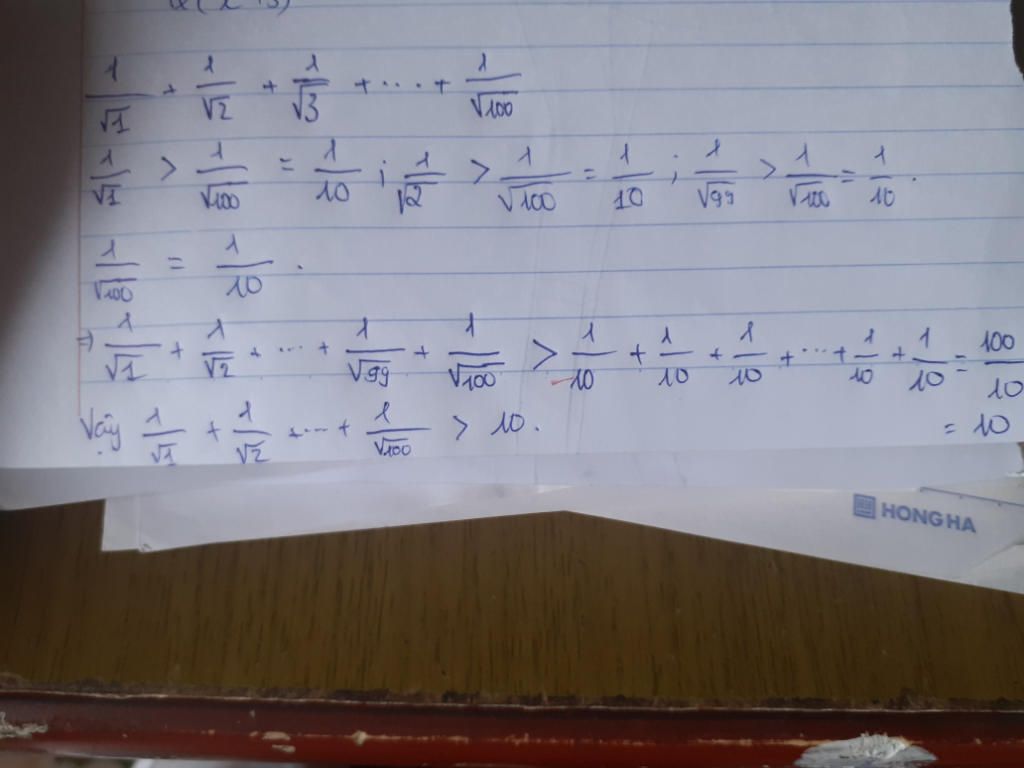 1/√1 + 1/√2 + 1/√3 + .... + 1/√100
1/√1 > 1/√100 = 1/10 ; 1/√2 > 1/√100 = 1/10 ; 1/√99 > 1/√100 = 1/10 .
1/√100 = 1/10 .
⇒ 1/√1 + 1/√2 + ... + 1/√99 + 1/√100 > 1/10 + 1/10 + 1/10 + ... + 1/10 + 1/10 = 100/10
= 10
Vậy 1/√1 + 1/√2 + ... + 1/√100 > 10 .
HONG HA